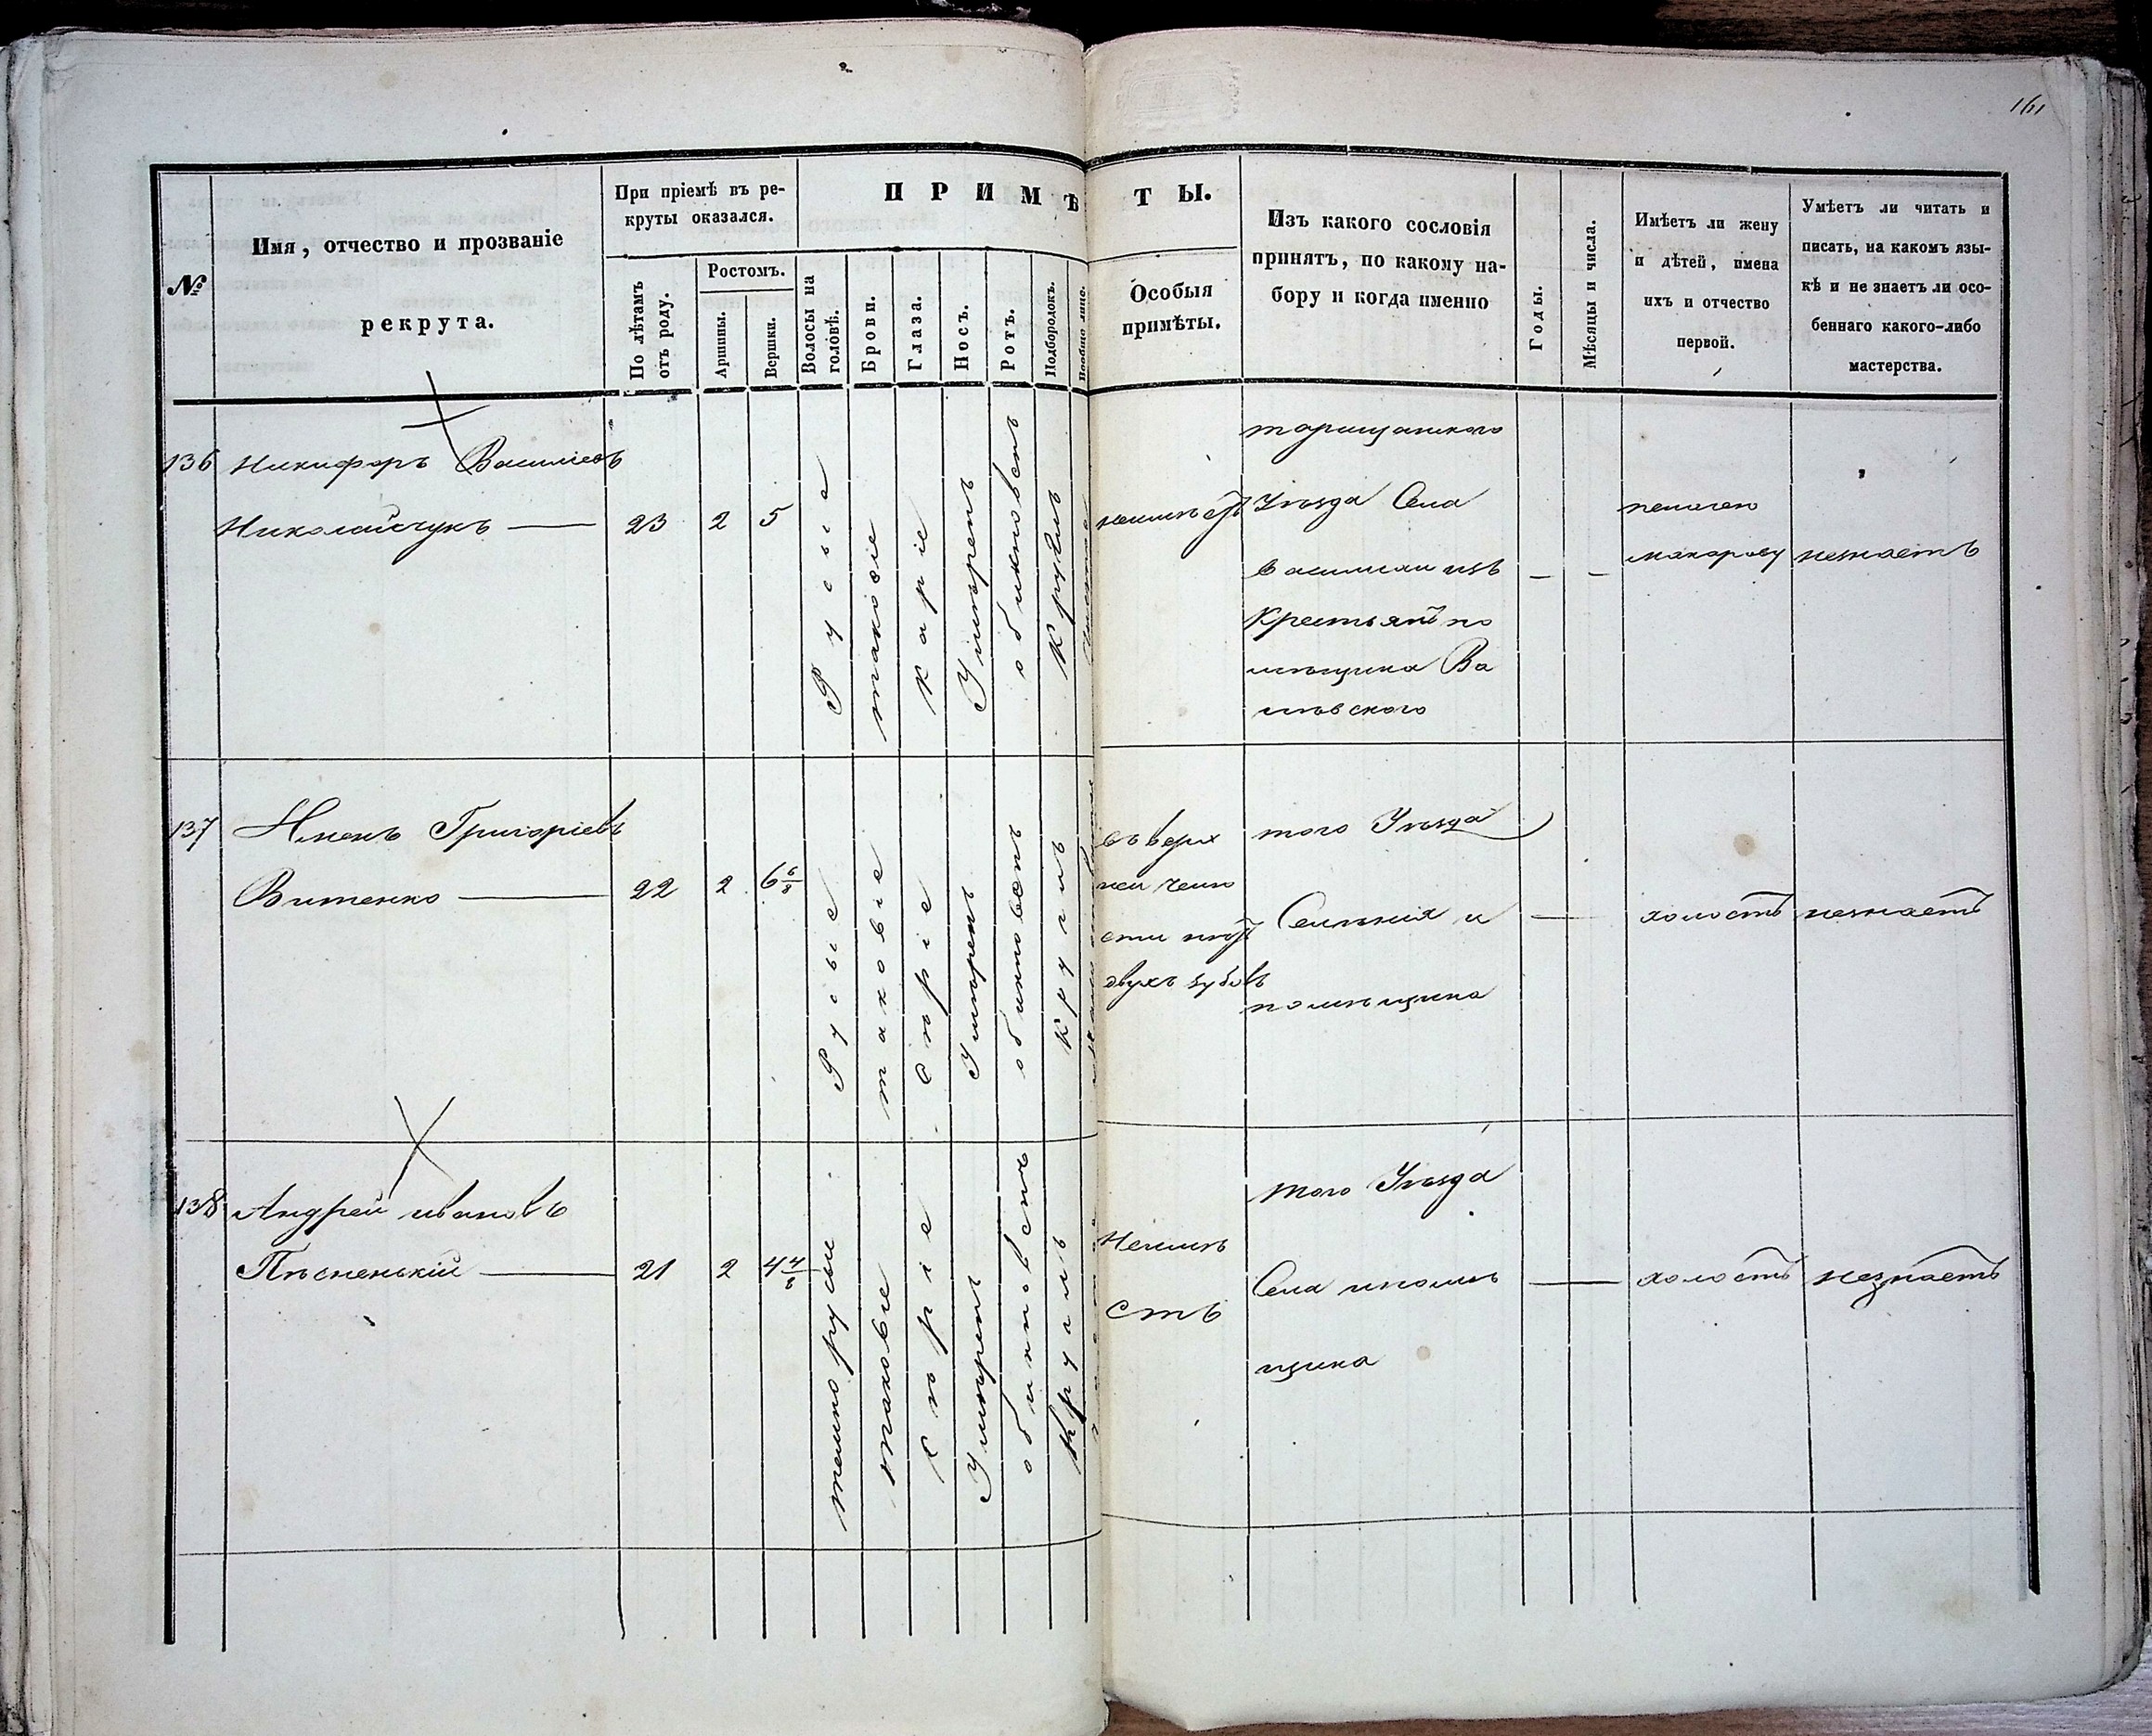 161
№
Имя, отчество и прозваніе
рекрута.
При пріемѣ въ ре-
круты оказался.
По лѣтамъ
отъ роду.
Ростомъ.
Аршины.
Вершки.
ПРИМѢ
ТЫ.
Волосы на
головѣ.
Брови.
Глаза.
Носъ.
Ротъ.
Подбородокъ.
Вообще лице.
Особыя
примѣты.
Изъ какого сословія
принятъ, по какому на-
бору и когда именно
Годы.
Мѣсяцы и числа.
Имѣетъ ли жену
и дѣтей, имена
ихъ и отчество
первой.
Умѣетъ ли читать и
писать, на какомъ язы-
кѣ и не знаетъ ли осо-
беннаго какого-либо
мастерства.
136
Никифоръ Васильевъ
Николайчукъ
23
2
5
Русыа
таковіе
Каріе
Умѣренъ
обикновенъ
Круглъ
Чистое
неимѣетъ
таращанского
Уѣзда Села
Василихи изъ
Крестьянъ по
мѣщика Ва
Макарову
незнаетъ
137
Григоріевъ
Витенко
22
2
6 6/8
Русые
таковіе
Сѣріе
Умѣренъ
обикновенъ
Круглъ
въ верх
ней челю
сти нѣтъ
двухъ зубовъ
того Уѣзда
Селѣнія и
помѣщика
холостъ
незнаетъ
138
Андрей ивановъ
Пѣсненькій
21
2
4 4/8
темнорусы
таковіе
Сѣріе
Умѣренъ
обикновенъ
Круглъ
Неимѣ
етъ
того Уѣзда
Села ипомѣ
щика
холостъ
незнаетъ